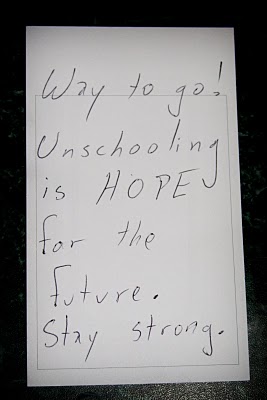 Way to go!
Unschooling
is HOPE
for the
future.
Stay strong.